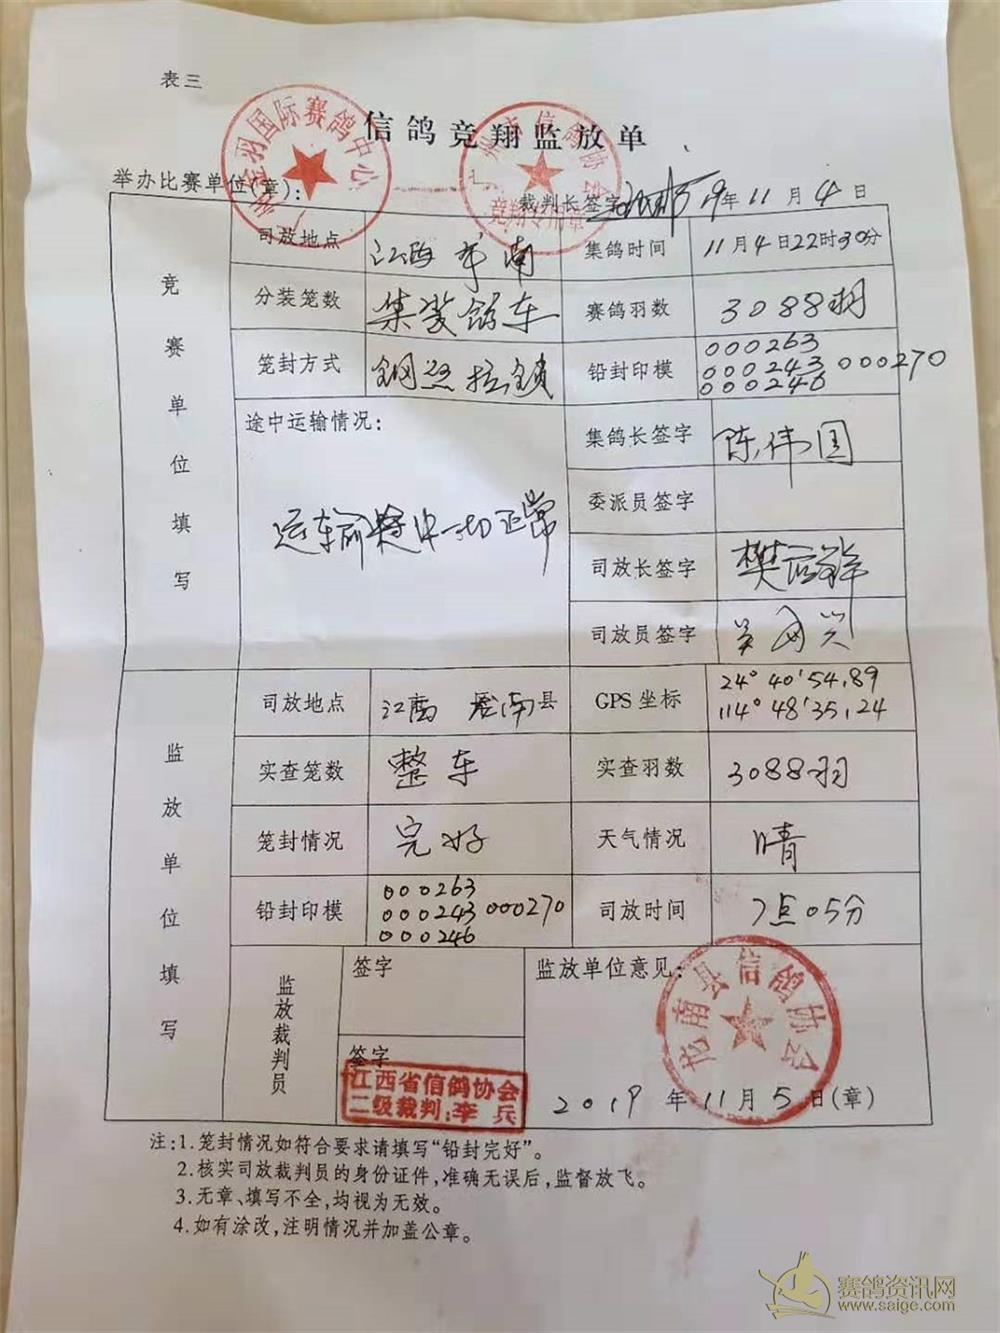 表三
信鸽竞翔监放单
举办比赛单位(章):
羽国际赛鸽中心
州市信鸽协会
竞翔专用章
裁判长签字
19年11月4日
竞赛单位填写
司放地点 江西 南 集鸽时间 11月4日22时30分
分装笼数 集装鸽车 赛鸽羽数 3088羽
笼封方式 钢丝拉锁 铅封印模 000263
000243 000270
000246
途中运输情况: 集鸽长签字 陈伟国
运输途中一切正常
委派员签字
司放长签字 樊
司放员签字
监放单位填写
司放地点 江西 龙南县 GPS坐标 24°40'54.89
114°48'35.24
实查笼数 整车 实查羽数 3088羽
笼封情况 完好 天气情况 晴
铅封印模 000263
000243 000270
000246
司放时间 7点05分
监放裁判员 签字 监放单位意见:
龙南县信鸽协会
签字
江西省信鸽协会
二级裁判:李兵
2019年11月5日(章)
注:1.笼封情况如符合要求请填写“铅封完好”。
2.核实司放裁判员的身份证件,准确无误后,监督放飞。
3.无章、填写不全,均视为无效。
4.如有涂改,注明情况并加盖公章。
赛鸽资讯网
www.saige.com